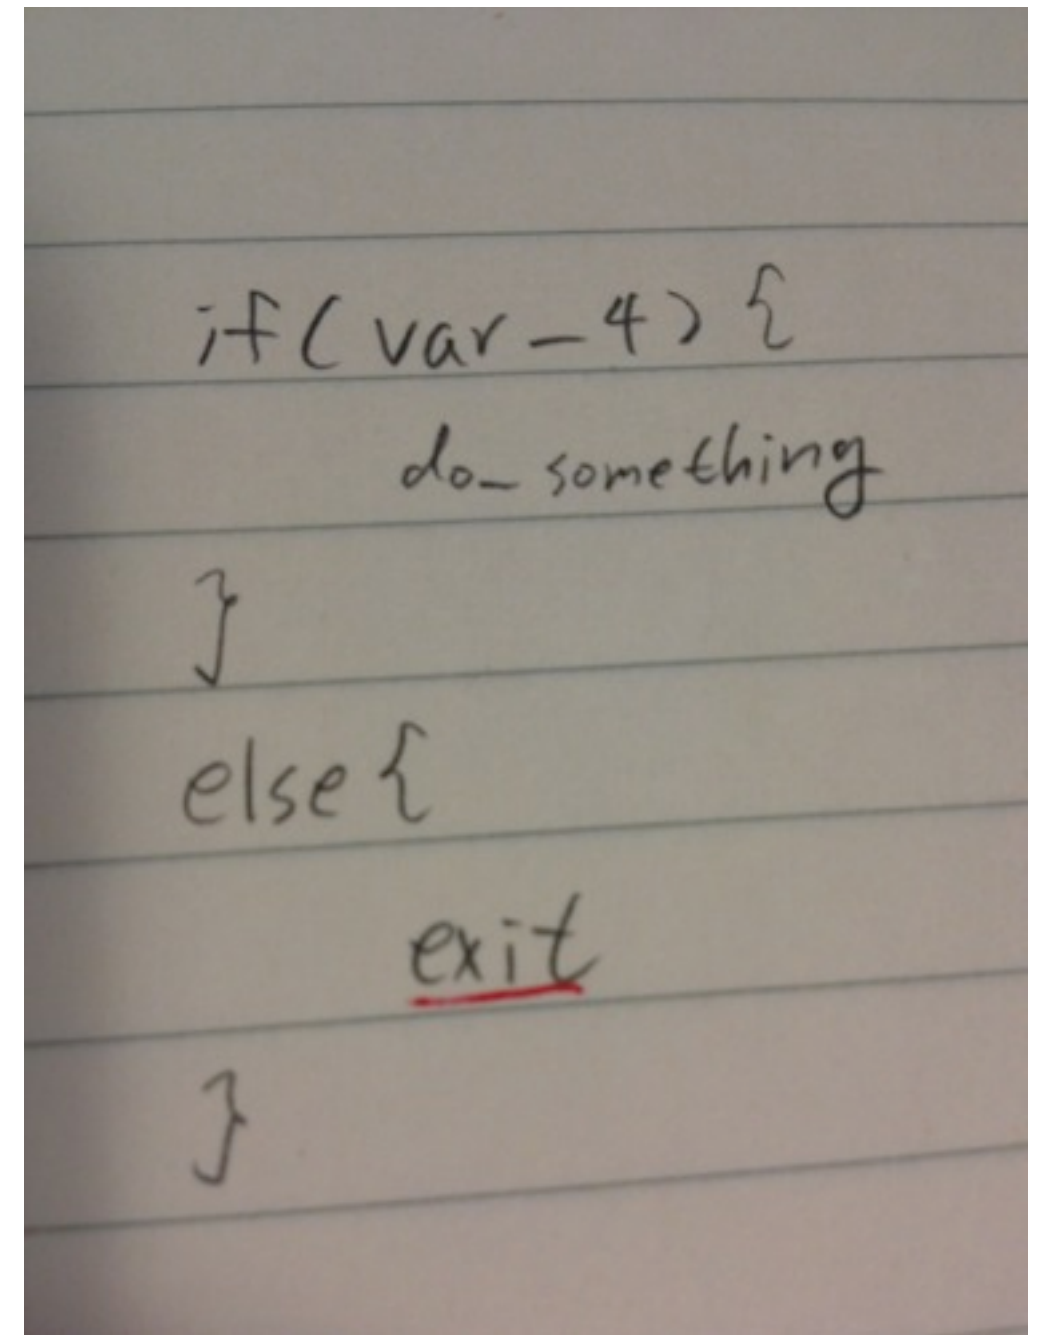 if(var-4){
do_something
}
else{
exit
}